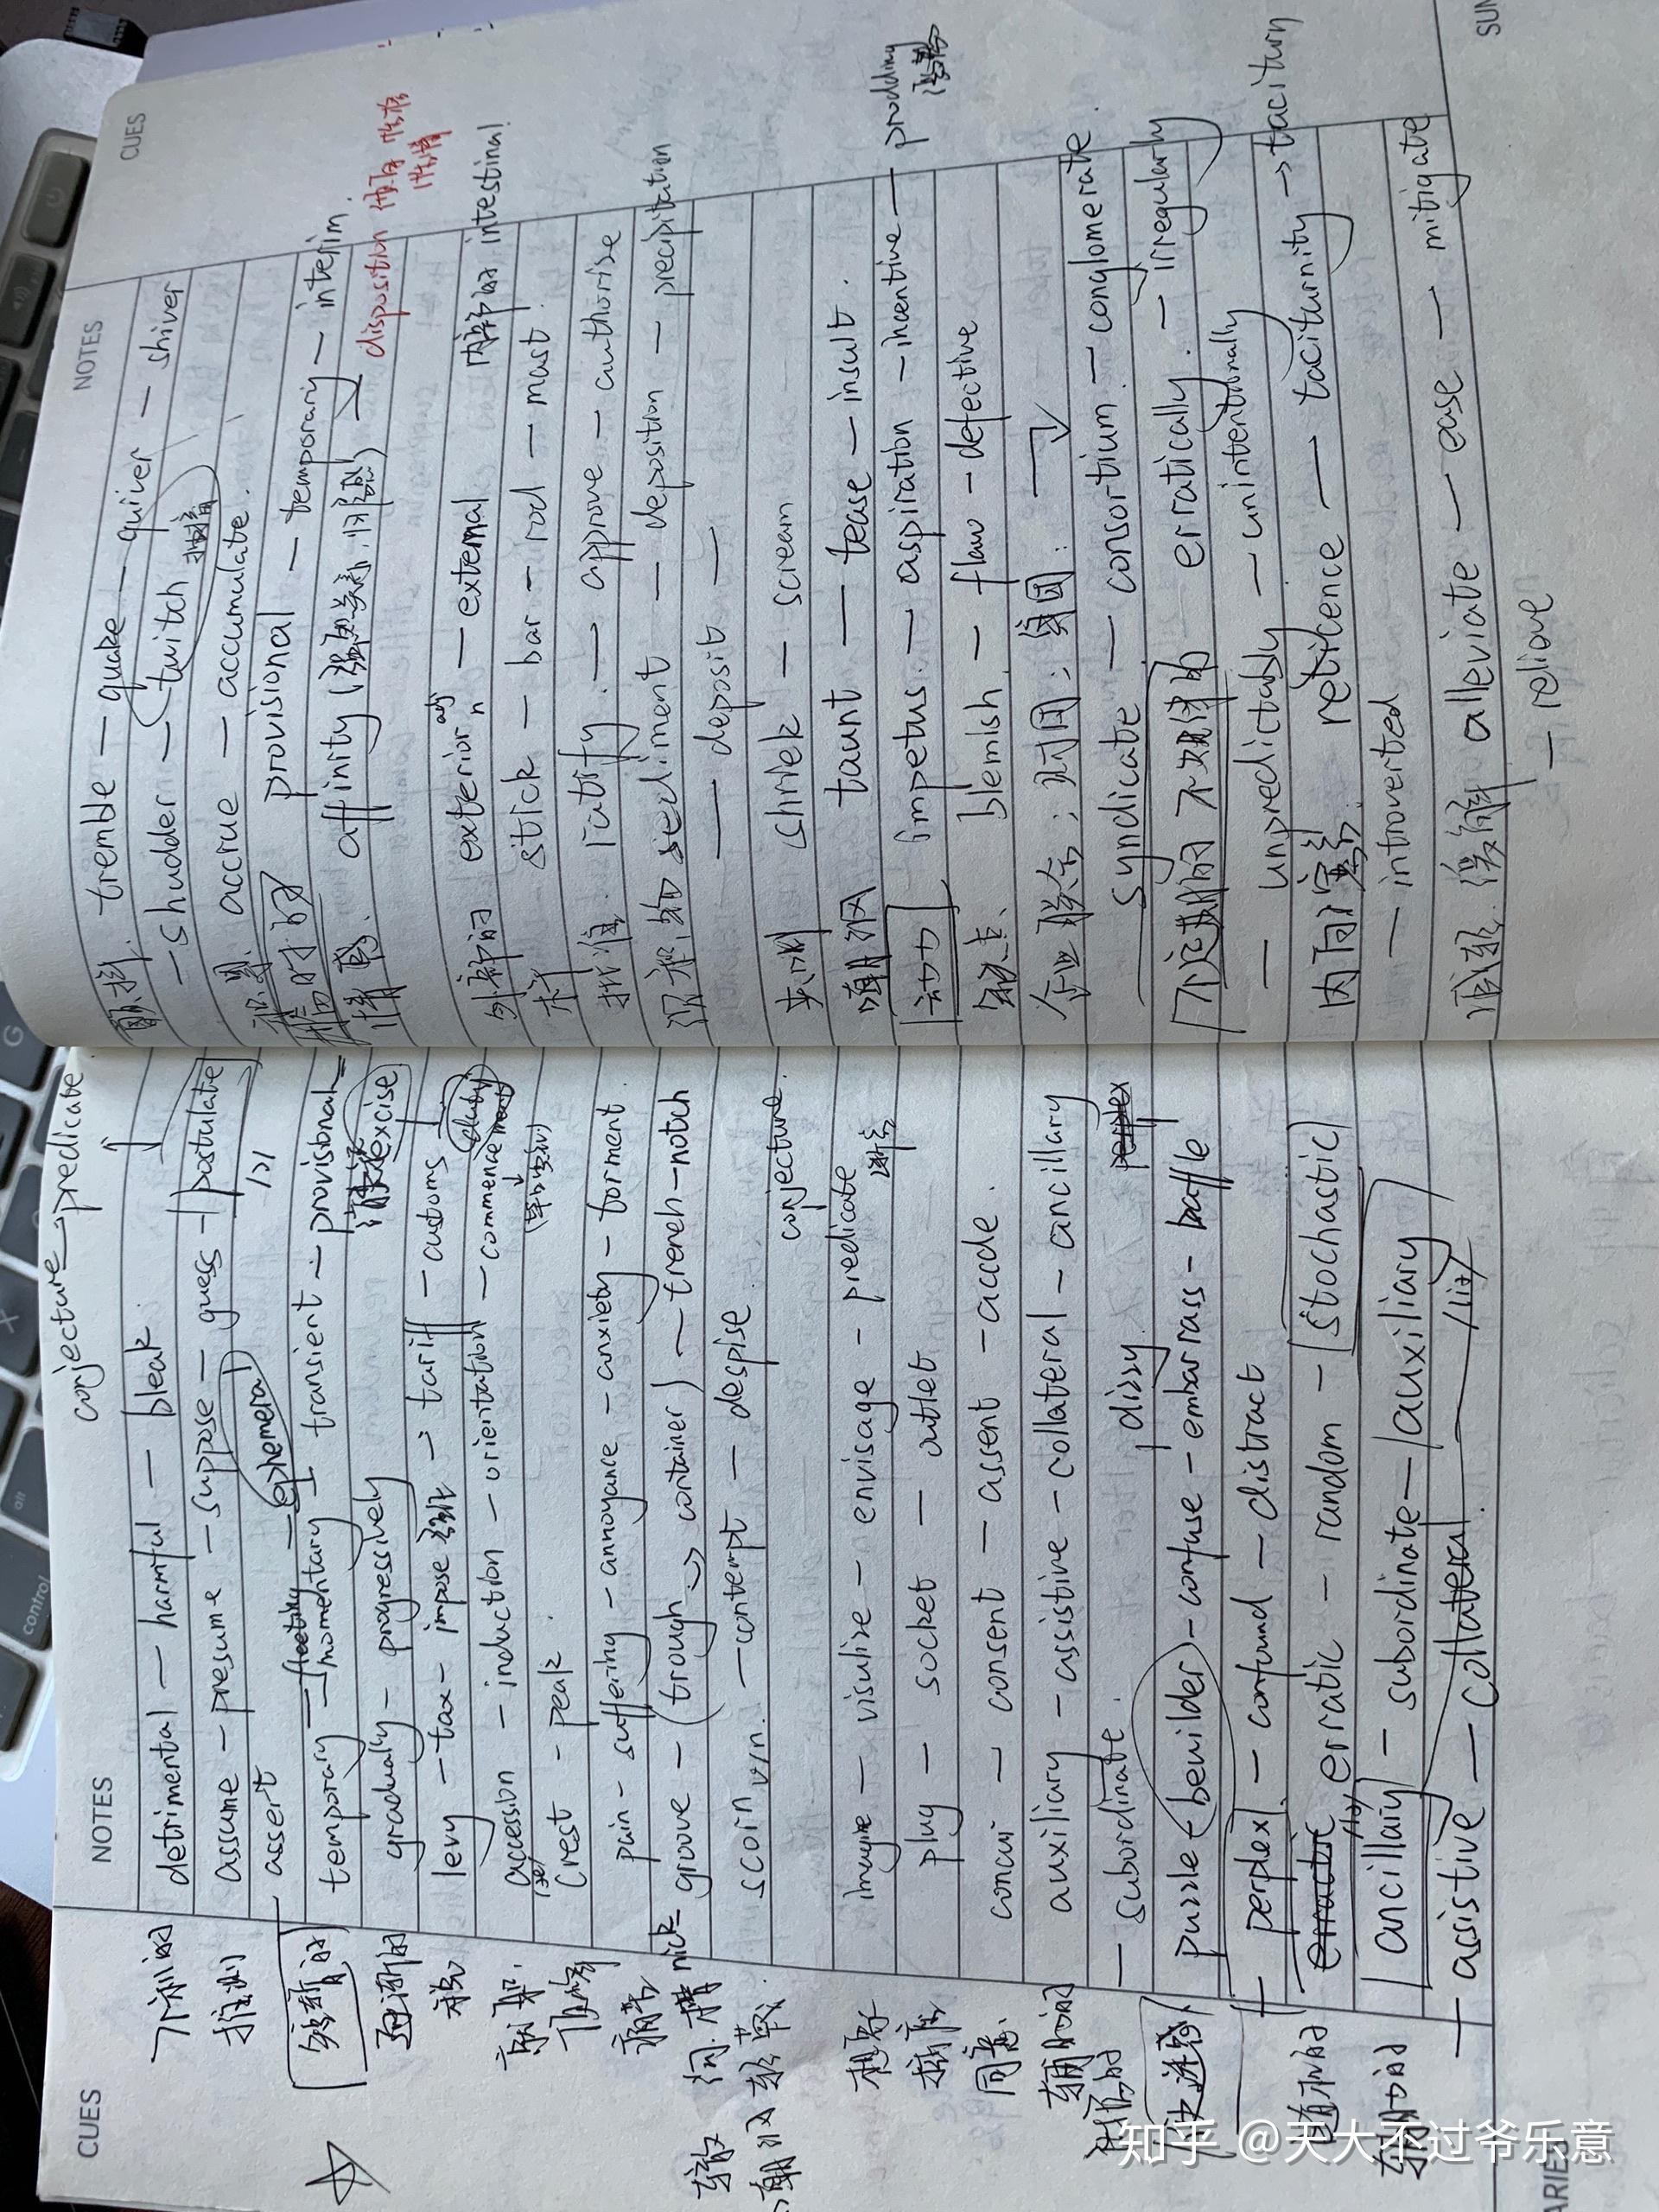 CUES
NOTES
conjecture — predicate
不利的 detrimental — harmful — bleak
推测 assume — presume — suppose — guess — postulate
— assert
短暂的 temporary — fleeting — ephemeral
momentary — transient — provisional
逐渐的 gradually — progressively 消费税 excise
税 levy — tax — impose 征收 → tariff — customs
就职 accession — induction — orientation — commencement
(毕业典礼)
顶峰 crest — peak
痛苦 pain — suffering — annoyance — anxiety — torment
沟.槽 nick groove — (trough → container) — trench — notch
轻蔑 scorn v/n. — contempt — despise
嘲讽
conjecture
想象 imagine — visulize — envisage — predicate 断言
插座 plug — socket — outlet
同意 concur — consent — assent — accede.
辅助的 auxiliary — assistive — collateral — ancillary
— subordinate.
dizzy perplex
使迷惑 puzzle — bewilder — confuse — embarrass — baffle
— perplex — confound — distract
随机的 erratic — random — stochastic
辅助的 ancillary — subordinate — auxiliary
— assistive — collateral
NOTES
CUES
颤抖. tremble — quake — quiver — shiver
— shudder — twitch 抽搐
积累 accrue — accumulate.
临时的 provisional — temporary — interim.
情感. affinity (强如亲密关系) → disposition
外部的 exterior adj n — external 内部的 intestinal
杆 stick — bar — rod — mast.
批准 ratify. — approve — authorise
沉积物 sediment — deposition — precipitation
— deposit —
尖叫 shriek — scream
嘲讽 taunt — tease — insult.
动力 impetus. — aspiration — incentive — prodding
缺点. blemish. — flaw — defective
企业联合;财团;集团: ↓
syndicate — consortium — conglomerate.
不定期的 不规律的 erratically. — irregularly
— unpredictably — unintentionally
内向寡言. reticence — taciturnity → taciturn
— introverted
减轻.缓解 alleviate — ease — mitigate
— relieve
知乎 @天大不过爷乐意